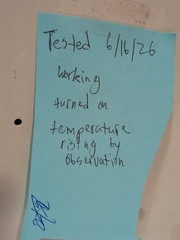 Tested 6/16/26
working
turned on
temperature
rising by
observation